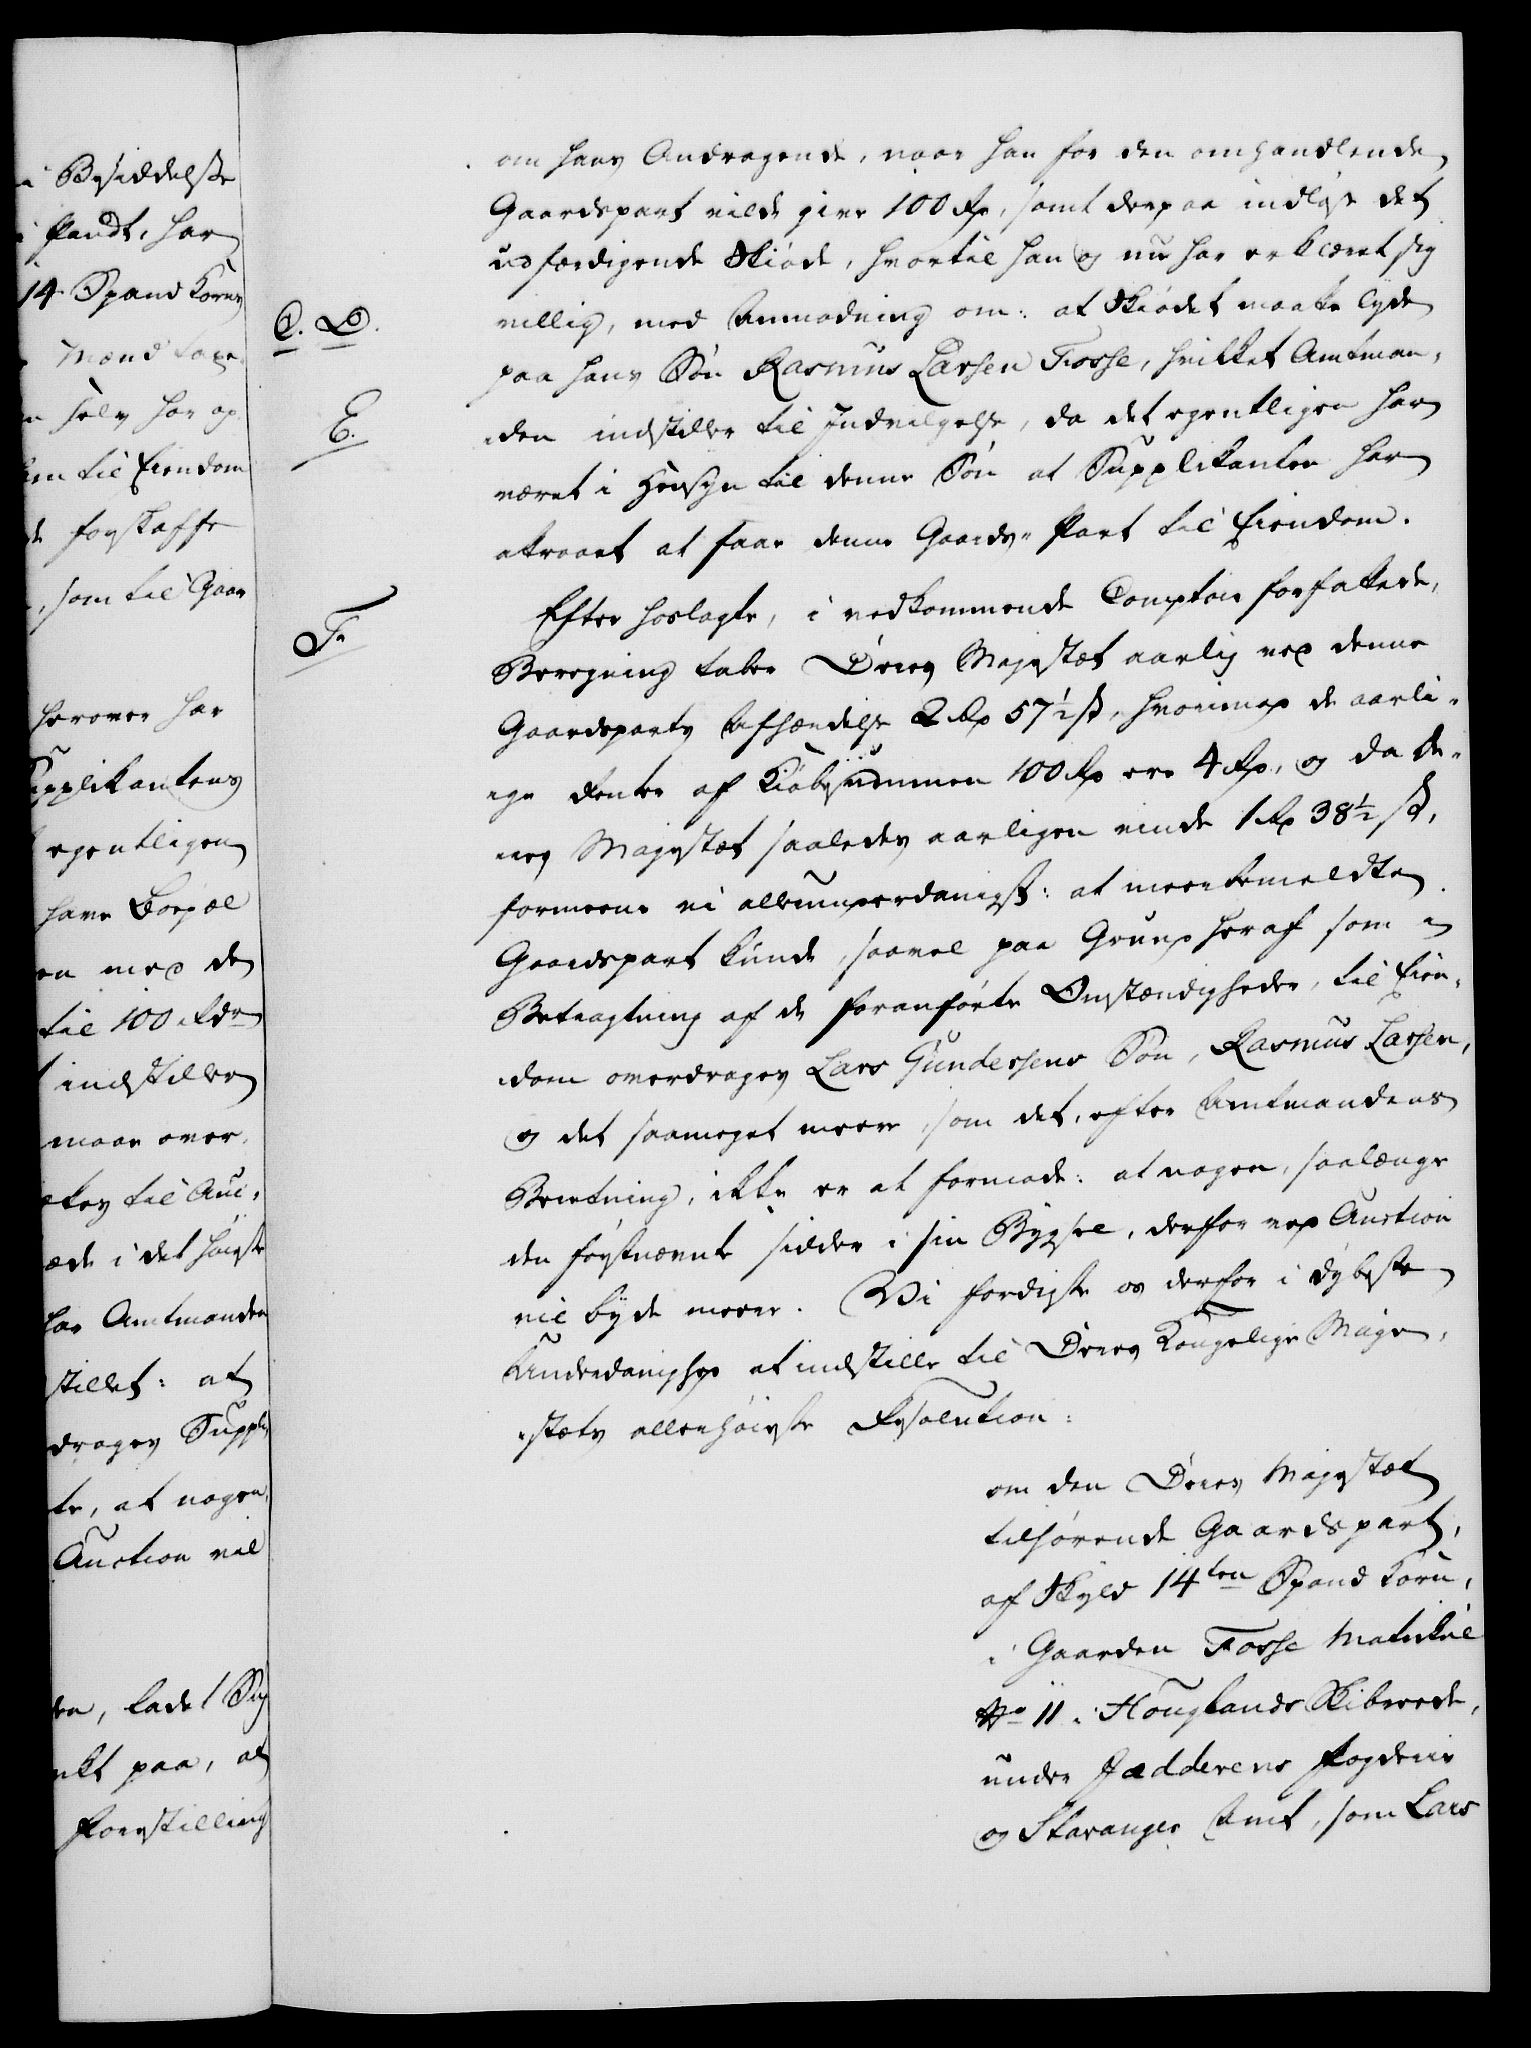 i Besiddelse
i Pandt, har
14 Spand Korns
Mænd taxe-
selv har op
til Eiendom
forskaffe
, som til Gaar
herover har
Supplikantens
egentligen
have Boepæl
en med de
til 100 Rdr
indstiller
maae over-
til Auc-
i det høieste
har Amtmanden
stillet: at
drages Suppli
te, at nogen
Auction vil
, ladet Sup
paa, at
Forestilling
om hans Andragende, naar han for den omhandlende
Gaardspart vilde give 100 Rd, samt derpaa indløse det
udfærdigende Skiøde, hvortil han og nu har erklæret sig
C. D.
villig, med Anmodning om: at Skiødet maatte lyde
paa hans Søn Rasmus Larsen Fosse, hvilket Amtman-
E.
den indstiller til Indvilgelse, da det egentligen har
været i Hensyn til denne Søn at Supplikanten har
attraaet at faae denne Gaards-Part til Eiendom.
Efter hoslagte, i vedkommende Comptoir forfattede,
F.
Beregning taber Deres Majestæt aarlig ved denne
Gaardsparts Afhændelse 2 Rd 57½ ß, hvorimod de aarli-
ge Renter af Kiøbesummen 100 Rd ere 4 Rd, og da De-
res Majestæt saaledes aarligen vinde 1 Rd 38½ ß,
formeene vi allerunderdanigst: at meerbemeldte
Gaardspart kunde, saavel paa Grund heraf som i
Betragtning af de foranførte Omstændigheder, til Eien-
dom overdrages Lars Gundersens Søn, Rasmus Larsen,
og det saameget meere, som det, efter Amtmandens
Beretning, ikke er at formode: at nogen, saalænge
den førstnævnte sidder i sin Bygsel, derfor ved Auction
vil byde meere. Vi fordriste os derfor i dybeste
Underdanighed at indstille til Deres Kongelige Maje-
stæts allerhøieste Resolution:
om den Deres Majestæt
tilhørende Gaardspart,
af Skyld 14ten Spand Korn,
i Gaarden Fosse Matricul
No 11 i Houglands Skibreede,
under Jædderens Fogderie
og Stavanger Amt, som Lars